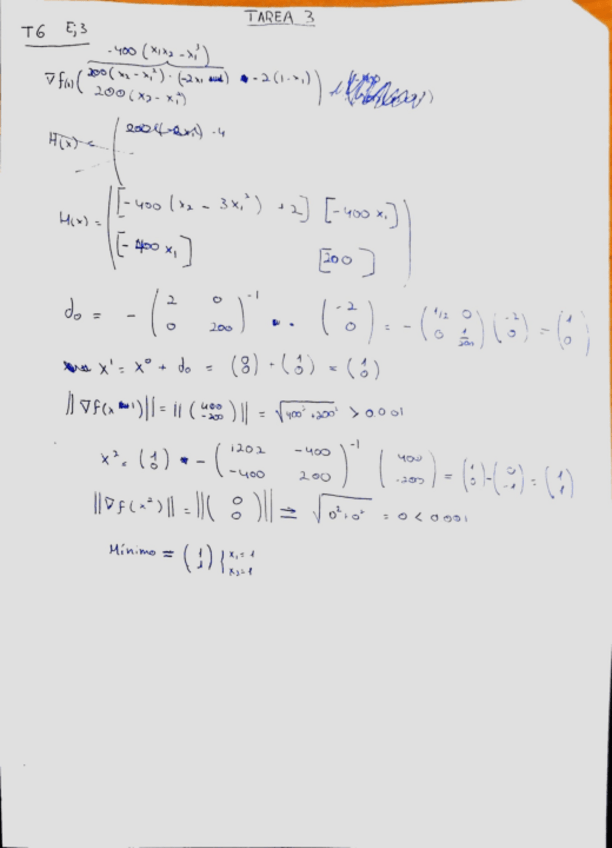 TAREA 3
T6 Ej3
-400(x₁x₂ - x₁³)
∇f(x) ( 200(x₂ - x₁²)·(-2x₁ - 2(1-x₁) )
200(x₂ - x₁²)
H(x) = (
H(x) = ( [-400(x₂ - 3x₁²) + 2] [-400x₁] )
[-400x₁] [200]
d₀ = - ( 2 0 ; 0 200 )⁻¹ · ( -2 ; 0 ) = - ( 1/2 0 ; 0 1/200 ) ( -2 ; 0 ) = ( 1 ; 0 )
x¹ = x⁰ + d₀ = ( 0 ; 0 ) + ( 1 ; 0 ) = ( 1 ; 0 )
||∇f(x 1)|| = || ( 400 ; -200 ) || = √400²+200² > 0.001
x² = ( 1 ; 0 ) - ( 1202 -400 ; -400 200 )⁻¹ ( 400 ; -200 ) = ( 1 ; 0 ) - ( 0 ; -1 ) = ( 1 ; 1 )
||∇f(x²)|| = || ( 0 ; 0 ) || = √0²+0² = 0 < 0.001
Mínimo = ( 1 ; 1 ) } x₁=1
x₂=1